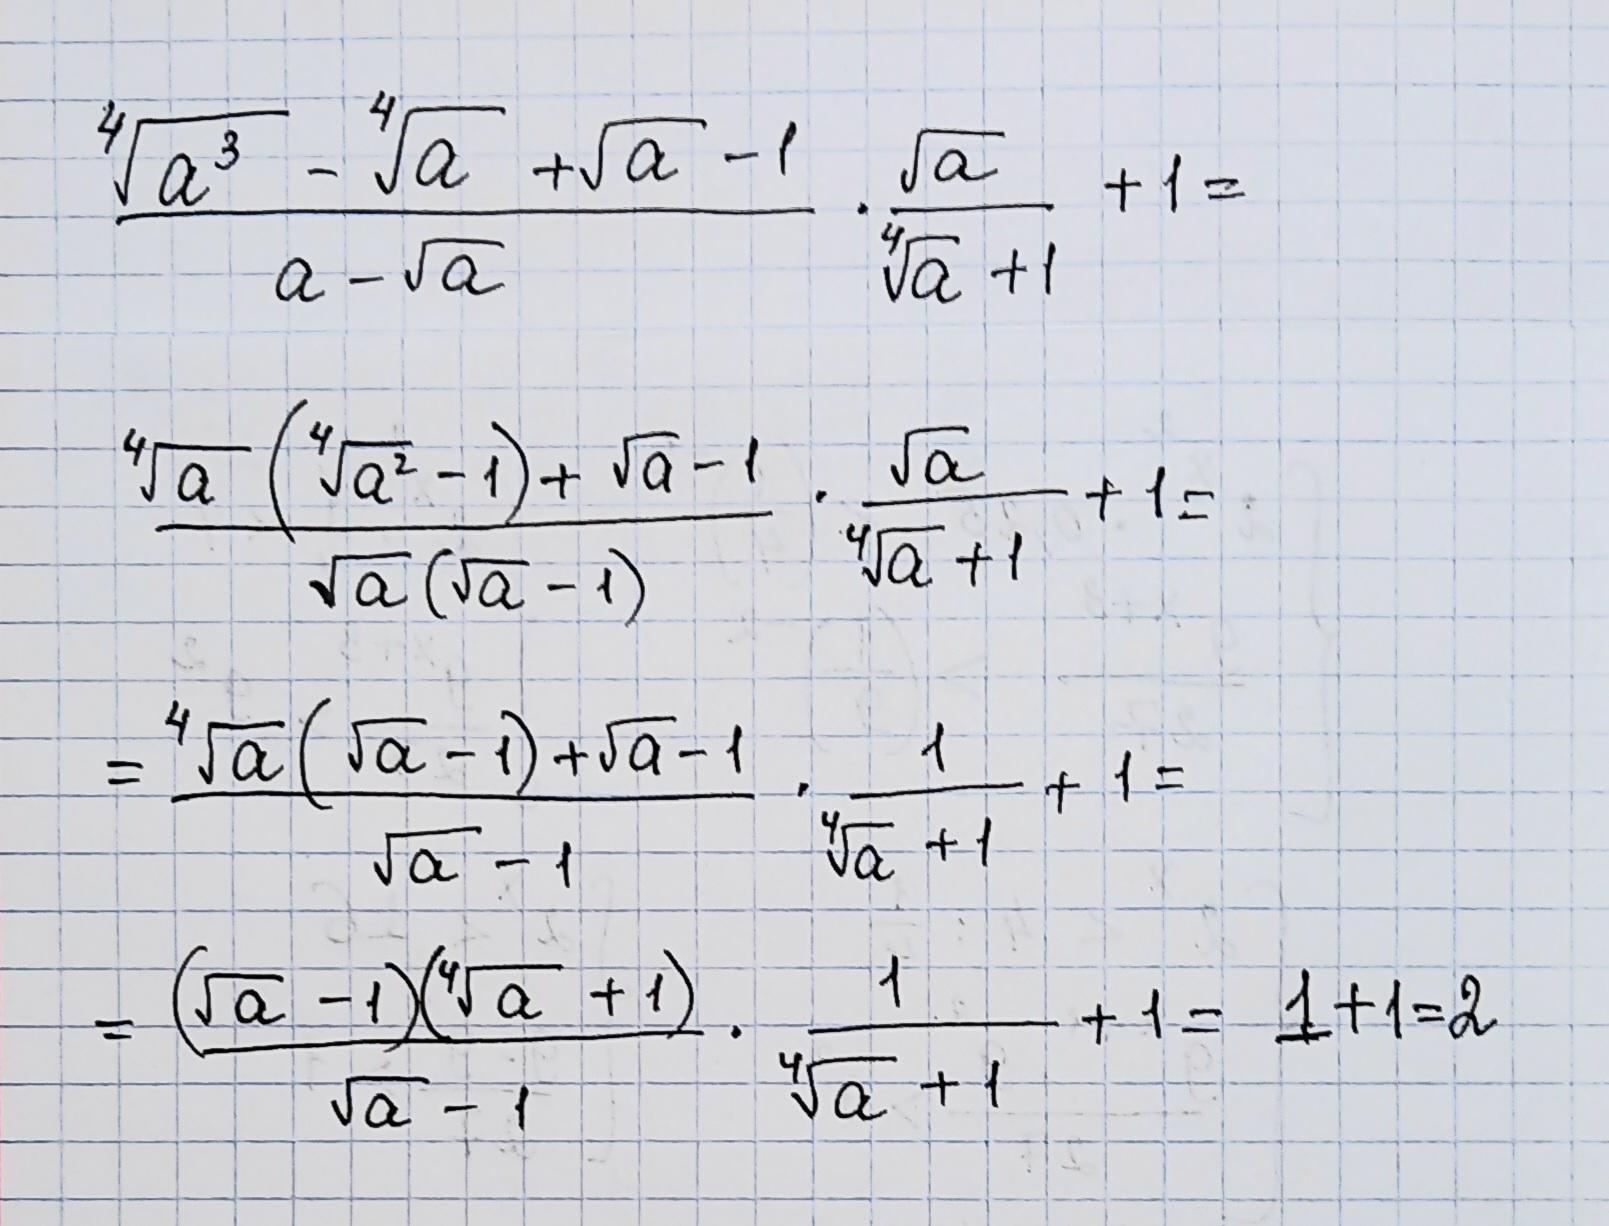 (⁴√(a³) - ⁴√a + √a - 1)/(a - √a) · √a/(⁴√a + 1) + 1 =
(⁴√a (⁴√(a²) - 1) + √a - 1)/(√a (√a - 1)) · √a/(⁴√a + 1) + 1 =
= (⁴√a (√a - 1) + √a - 1)/(√a - 1) · 1/(⁴√a + 1) + 1 =
= ((√a - 1)(⁴√a + 1))/(√a - 1) · 1/(⁴√a + 1) + 1 = 1 + 1 = 2